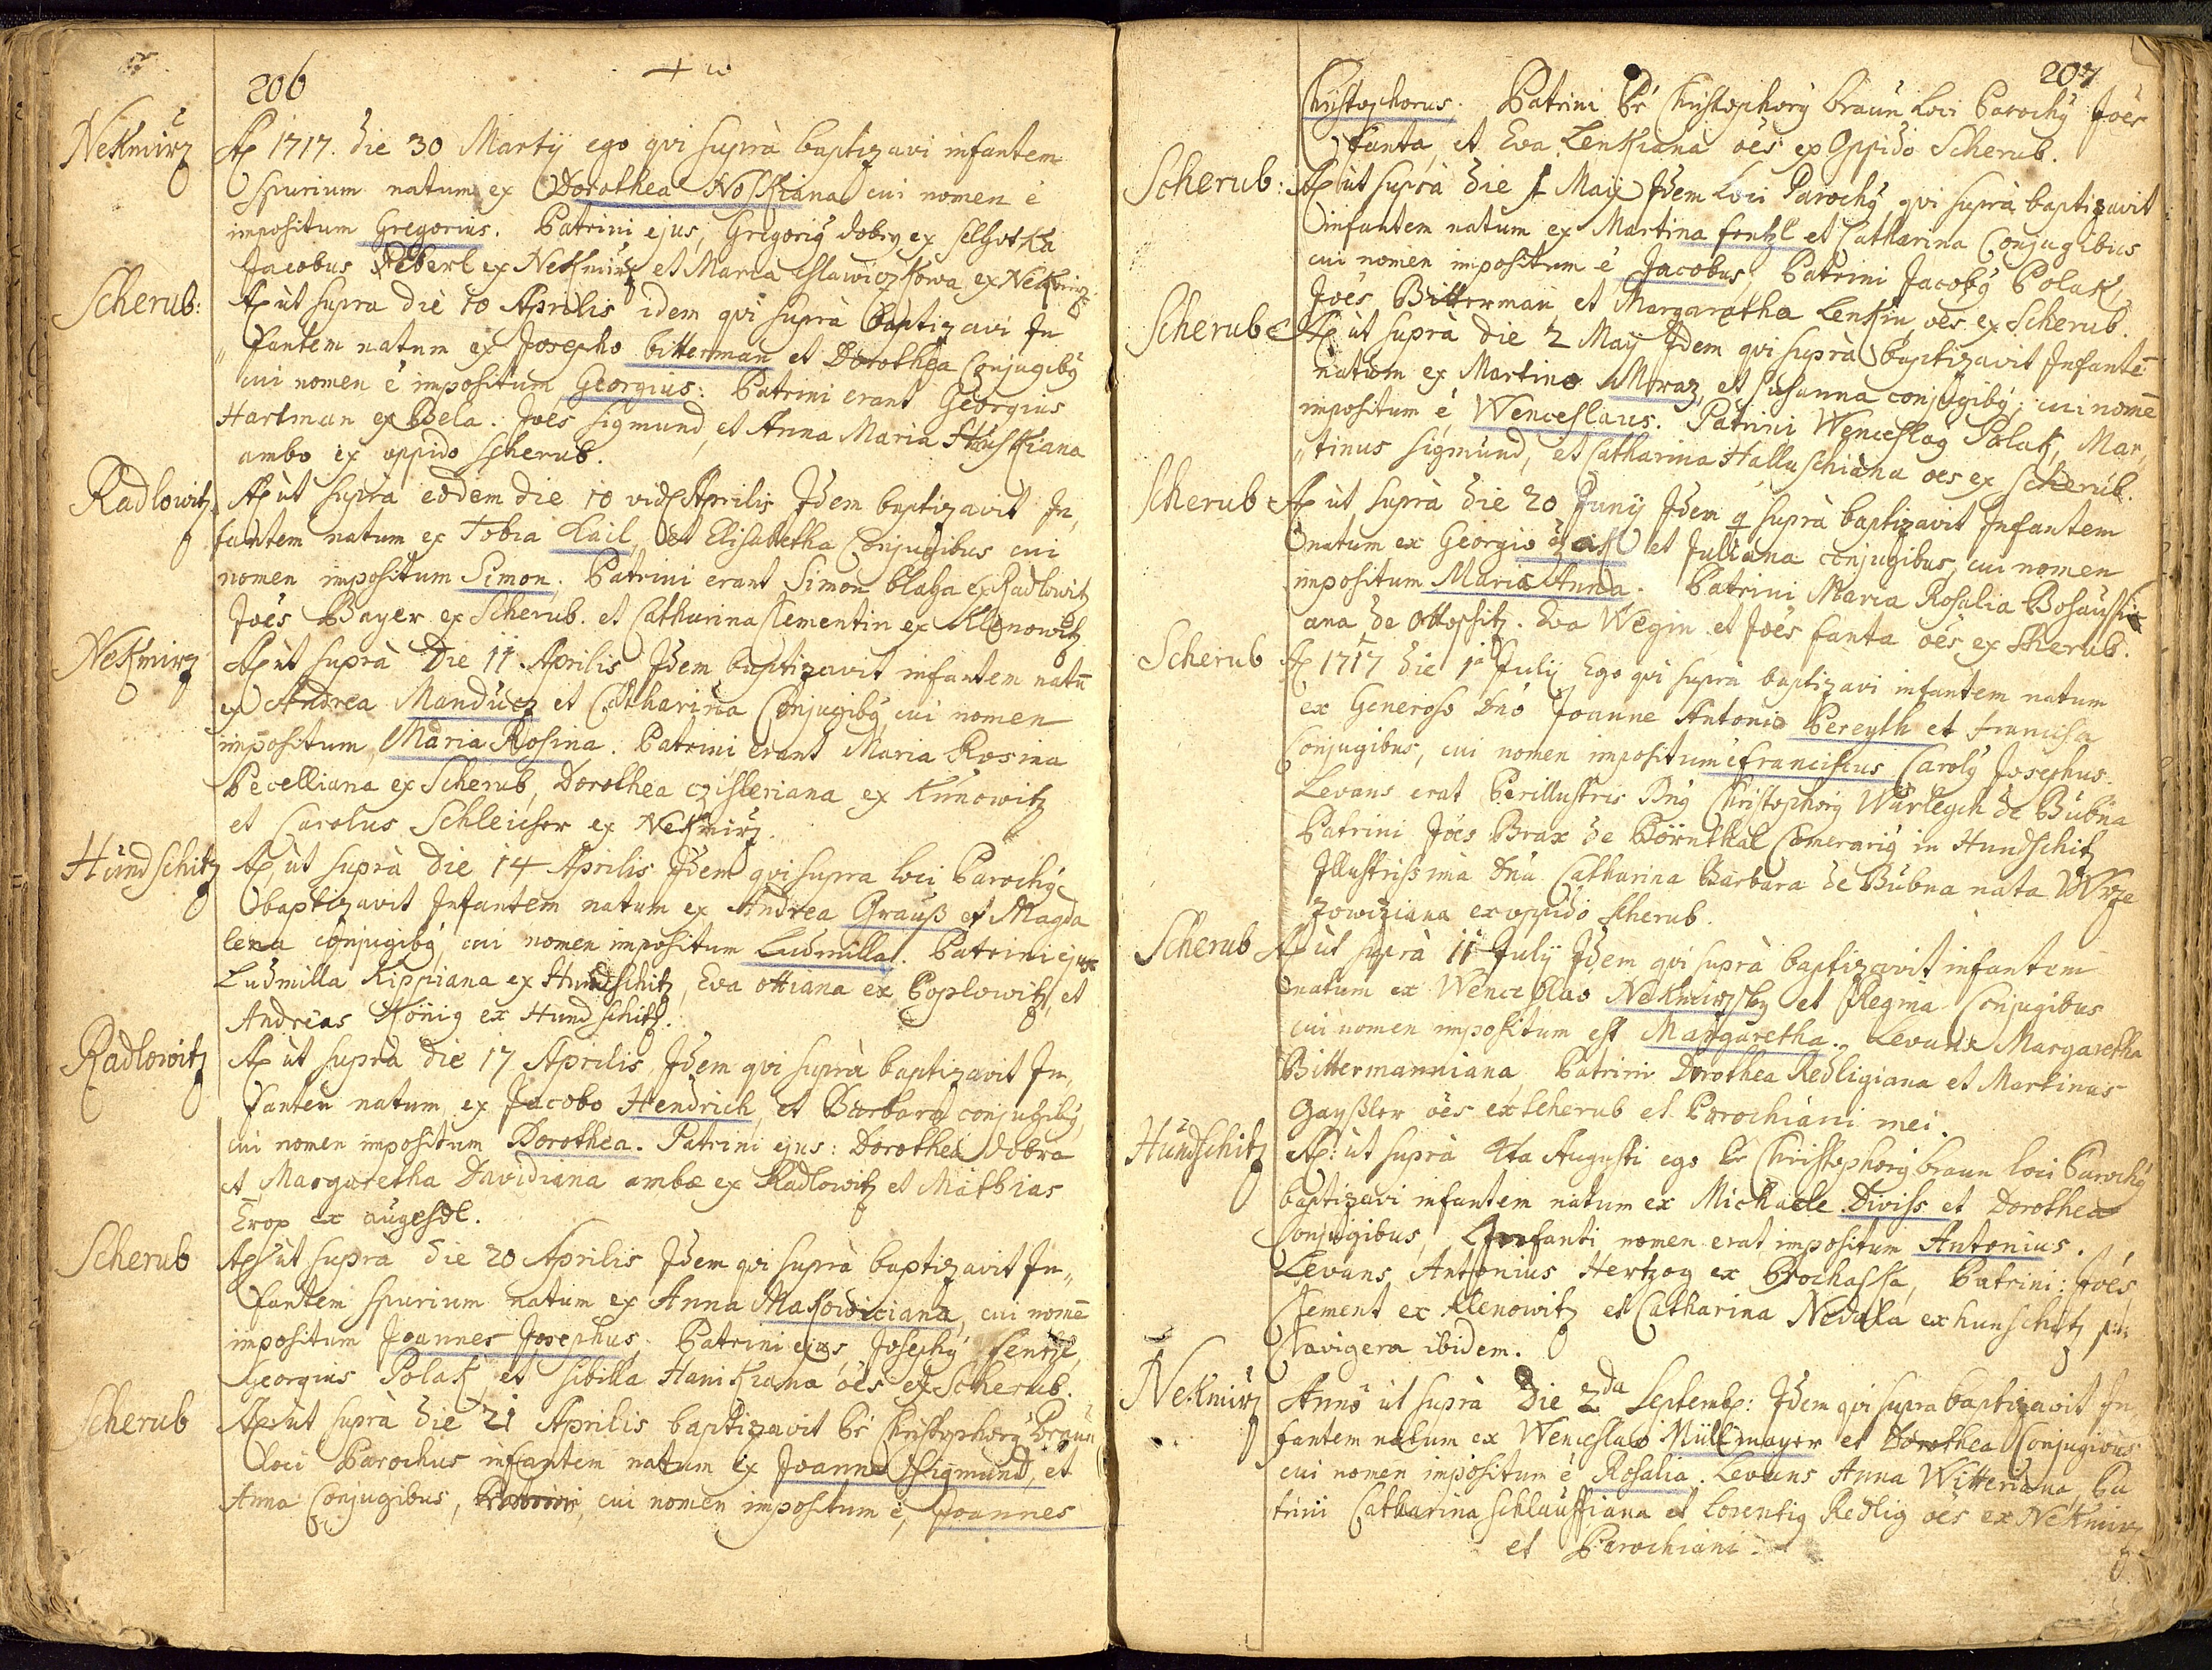 206
Nekmirz
A 1717. die 30 Martij ego qvi suprà baptizavi infantem
spurium natum ex Dorothea Noskiana cui nomen ē
impositum Gregorius. Patrini ejus, Gregorig dobry ex Selhotka
Jacobus Peberl ex Nekmirz et Maria Hlawiczkowa ex Nekmirz
Scherub:
A ùt supra die 10 Aprilis idem qvi suprà baptizavi In
fantem natum ex Josepho bitterman et Dorothea Conjugibg
cui nomen ē impositum Georgius: Patrini erant Georgius
Hartman ex Bela. Joes Sigmund, et Anna Maria
ambo ex oppido Scherub.
Radlowitz
A ùt suprà eodem die 10 vidz Aprilis Idem baptizavit In,
fantem natum ex Tobia Kail, et Elisabetha Conjugibus cui
nomen impositum Simon. Patrini erant Simon blaha ex Radlowitz
Joës Bayer ex Scherub. et Catharina Clementin ex Klenowitz
Nekmirz
A ùt suprà Die 11 Aprilis Idem baptizavit infantem natū
ex Andrea Manducz et Catharina Conjugibg cui nomen
impositum, Maria Rosina. Patrini erant Maria Rosina
Pecelliana ex Scherub, Dorothea czisleriana ex Kunowitz
et Carolus Schleicher ex Nekmirz.
Hundschitz
A ùt suprà Die 14 Aprilis Idem qvi supra loci Parochg
baptizavit Infantem natum ex Andrea Grauß et Magda
lena conjugibg cui nomen impositum Ludmilla. Patrini ejus
Ludmilla Kippiana ex Hundschitz, Eva ottiana ex Poplowitz, et
Andreas König ex Hundschitz.
Radlowitz
A ùt suprà die 17 Aprilis, Idem qvi suprà baptizavit In,
fantem natum ex Jacobo Hendrich, et Barbara conjugibg,
cui nomen impositum Dorothea. Patrini ejus: Dorothea dobra
et Margaretha Davidiana ambæ ex Radlowitz et Mathias
Erop ex augesdl.
Scherub
A ùt suprà die 20 Aprilis Idem qvi suprà baptizavit In,,
fantem spurium natum ex Anna Makowiciana, cui nomē
impositum Joannes Josephus. Patrini ejus, Josephg fentzl,
Georgius Polak, et Sibilla Hanikiana oēs ex Scherub.
Scherub
A ùt suprà die 21 Aprilis baptizavit Pr Christophorg Braun
loci Parochus infantem natum ex Joanne Sigmund, et
Anna Conjugibus, cui nomen impositum ē, Joannes
207
Christophorus. Patrini Pr Christophorg braun loci Parochg Joës
fanta, et Eva Lenkiana oēs ex Oppido Scherub.
Scherub:
A ùt suprà die 1 Maij Idem loci Parochg qvi suprà baptizavit
infantem natum ex Martina fentzl et Catharina Conjugibus
cui nomen impositum ē Jacobus, Patrini Jacobg Polak,
Joës Bitterman et Margaretha Lenkin oēs ex Scherub.
Scherub
A ùt suprà die 2 Maij Idem qvi suprà baptizavit Infantē
natum ex Martino Moraz, et Susanna conjugibg; cui nomē
impositum ē, Wenceslaus. Patrini Wenceslag Polak, Mar,,
,,tinus Sigmund, et Catharina Halluschiana oes ex Scherub.
Scherub
A ùt suprà die 20 Junij Idem q suprà baptizavit Infantem
natum ex Georgio et Juliana conjugibus, cui nomen
impositum Maria Anna. Patrini Maria Rosalia
ana de Ottoschitz. Eva Wegin et Joës fanta oēs ex Scherub.
Scherub
A 1717 die 1a Julij Ego qvi suprà baptizavi infantem natum
ex Generoso Dnō Joanne Antonio Pereyth et francisca
Conjugibus, cui nomen impositum ē franciscus Carolg Josephus.
Levans erat Perillustris Dng Christophorg Würlegch de Bubna
Patrini Joës Brax de Börnthal Comerarig in Hundschitz
Illustrissima Dna Catharina Barbara de Bubna nata Wrze
zowiziana ex oppido Scherub.
Scherub
A ùt suprà 11 Julij Idem qvi suprà baptizavit infantem
natum ex Wenceslao Nekmirzsky et Regina Conjugibus
cui nomen impositum est Margaretha. Levans Margaretha
Bittermanniana, Patrini Dorothea Redligiana et Martinus
Gayßler oēs ex Scherub et Parochiani mei.
Hundschitz
A: ùt suprà 4ta Augusti ego Pr Christophorg braun loci Parochg
baptizavi infantem natum ex Michaele Diviss et Dorothea
Conjugibus, Infanti nomen erat impositum Antonius.
Levans Antonius Hertzog ex Brochassa, Patrini: Joës
Clement ex Klenowitz et Catharina Nedala ex hunschitz
Clavigera ibidem.
Nekmirz
Annô ùt suprà Die 2da Septemb: Idem qvi supra baptizavit In
fantem natum ex Wenceslao Müllmayer et Dorothea Conjugibus
cui nomen impositum ē Rosalia. Levans Anna Witteriana, Pa
trini Catharina Schlauffiana et Lorentig Redlig oēs ex Nekmirz
et Parochiani